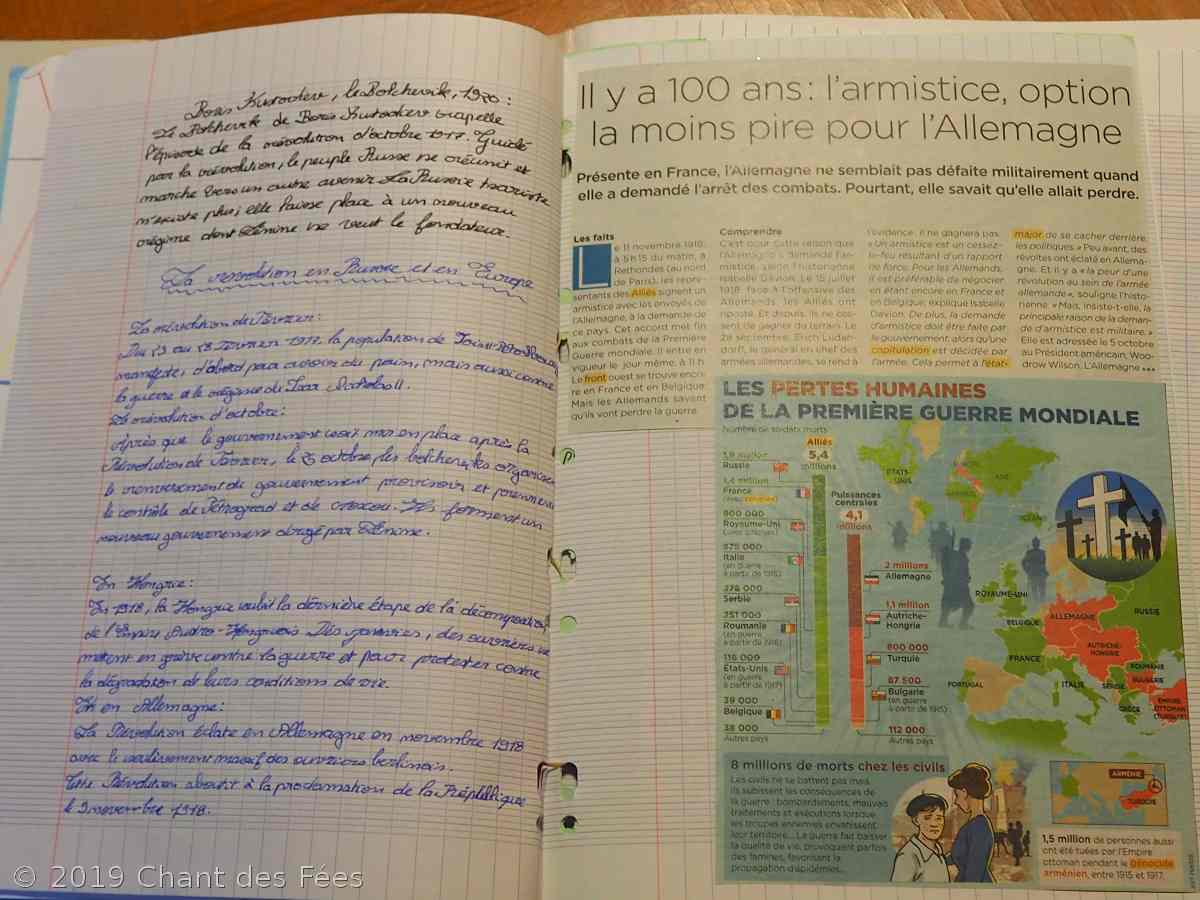 Boris Kustodiev, le Bolchevik, 1920 :
Le Bolchevik de Boris Kustodiev rappelle
l'épisode de la révolution d'octobre 1917. Guidé
par la révolution, le peuple Russe se réunit et
marche vers un autre avenir. La Russie tsariste
n'existe plus, elle laisse place à un nouveau
régime dont Lénine se veut le fondateur.
La révolution en Russie et en Europe
La révolution de Février :
Du 23 au 28 Février 1917, la population de
manifeste, d'abord pour avoir du pain, mais aussi contre
la guerre et le régime du Tsar Nicolas II.
La révolution d'octobre :
Après que le gouvernement mis en place après la
Révolution de Février, le 25 octobre, les bolcheviks organisent
le renversement du gouvernement provisoire et prennent
le contrôle de Pétrograd et de Moscou. Ils forment un
nouveau gouvernement dirigé par Lénine.
En Hongrie :
En 1918, la Hongrie subit la dernière étape de la décomposition
de l'Empire Austro-Hongrois. Dès janvier, des ouvriers se
mettent en grève contre la guerre et pour protester contre
la dégradation de leurs conditions de vie.
en Allemagne :
La Révolution éclate en Allemagne en novembre 1918
avec le soulèvement massif des ouvriers berlinois.
Cette Révolution aboutit à la proclamation de la République
le 9 novembre 1918.
Il y a 100 ans : l'armistice, option
la moins pire pour l'Allemagne
Présente en France, l'Allemagne ne semblait pas défaite militairement quand
elle a demandé l'arrêt des combats. Pourtant, elle savait qu'elle allait perdre.
Les faits
Le 11 novembre 1918,
à 5 h 15 du matin, à
Rethondes (au nord
de Paris), les repré-
sentants des Alliés signent un
armistice avec les envoyés de
l'Allemagne, à la demande de
ce pays. Cet accord met fin
aux combats de la Première
Guerre mondiale. Il entre en
vigueur le jour même, à 11 h.
Le front ouest se trouve enco-
re en France et en Belgique.
Mais les Allemands savent
qu'ils vont perdre la guerre.
Comprendre
C'est pour cette raison que
l'Allemagne a demandé l'ar-
mistice, selon l'historienne
Isabelle Davion. Le 15 juillet
1918, face à l'offensive des
Allemands, les Alliés ont
riposté. Et depuis, ils ne ces-
sent de gagner du terrain. Le
28 septembre, Erich Luden-
dorff, le général en chef des
armées allemandes, se rend à
l'évidence : il ne gagnera pas.
« Un armistice est un cessez-
le-feu résultant d'un rapport
de force. Pour les Allemands,
il est préférable de négocier
en étant encore en France et
en Belgique, explique Isabelle
Davion. De plus, la demande
d'armistice doit être faite par
le gouvernement, alors qu'une
capitulation est décidée par
l'armée. Cela permet à l'état-
major de se cacher derrière
les politiques. » Peu avant, des
révoltes ont éclaté en Allema-
gne. Et il y a « la peur d'une
révolution au sein de l'armée
allemande », souligne l'histo-
rienne. « Mais, insiste-t-elle, la
principale raison de la deman-
de d'armistice est militaire. »
Elle est adressée le 5 octobre
au Président américain, Woo-
drow Wilson. L'Allemagne •••
LES PERTES HUMAINES
DE LA PREMIÈRE GUERRE MONDIALE
Nombre de soldats morts
Alliés
5,4
millions
Puissances
centrales
4,1
millions
1,8 million
Russie
1,4 million
France
(avec colonies)
800 000
Royaume-Uni
(avec colonies)
578 000
Italie
(en guerre
à partir de 1915)
278 000
Serbie
251 000
Roumanie
(en guerre
à partir de 1916)
116 000
États-Unis
(en guerre
à partir de 1917)
39 000
Belgique
38 000
Autres pays
2 millions
Allemagne
1,1 million
Autriche-
Hongrie
800 000
Turquie
87 500
Bulgarie
(en guerre
à partir de 1915)
112 000
Autres pays
ÉTATS-
UNIS
ASIE
ROYAUME-UNI
BELGIQUE
ALLEMAGNE
RUSSIE
FRANCE
AUTRICHE-
HONGRIE
ROUMANIE
PORTUGAL
ITALIE
SERBIE
BULGARIE
GRÈCE
EMPIRE
OTTOMAN
(TURQUIE)
8 millions de morts chez les civils
Les civils ne se battent pas mais
ils subissent les conséquences de
la guerre : bombardements, mauvais
traitements et exécutions lorsque
les troupes ennemies envahissent
leur territoire... La guerre fait baisser
la qualité de vie, provoquant parfois
des famines, favorisant la
propagation d'épidémies...
ARMÉNIE
TURQUIE
1,5 million de personnes aussi
ont été tuées par l'Empire
ottoman pendant le génocide
arménien, entre 1915 et 1917.
© 2019 Chant des Fées